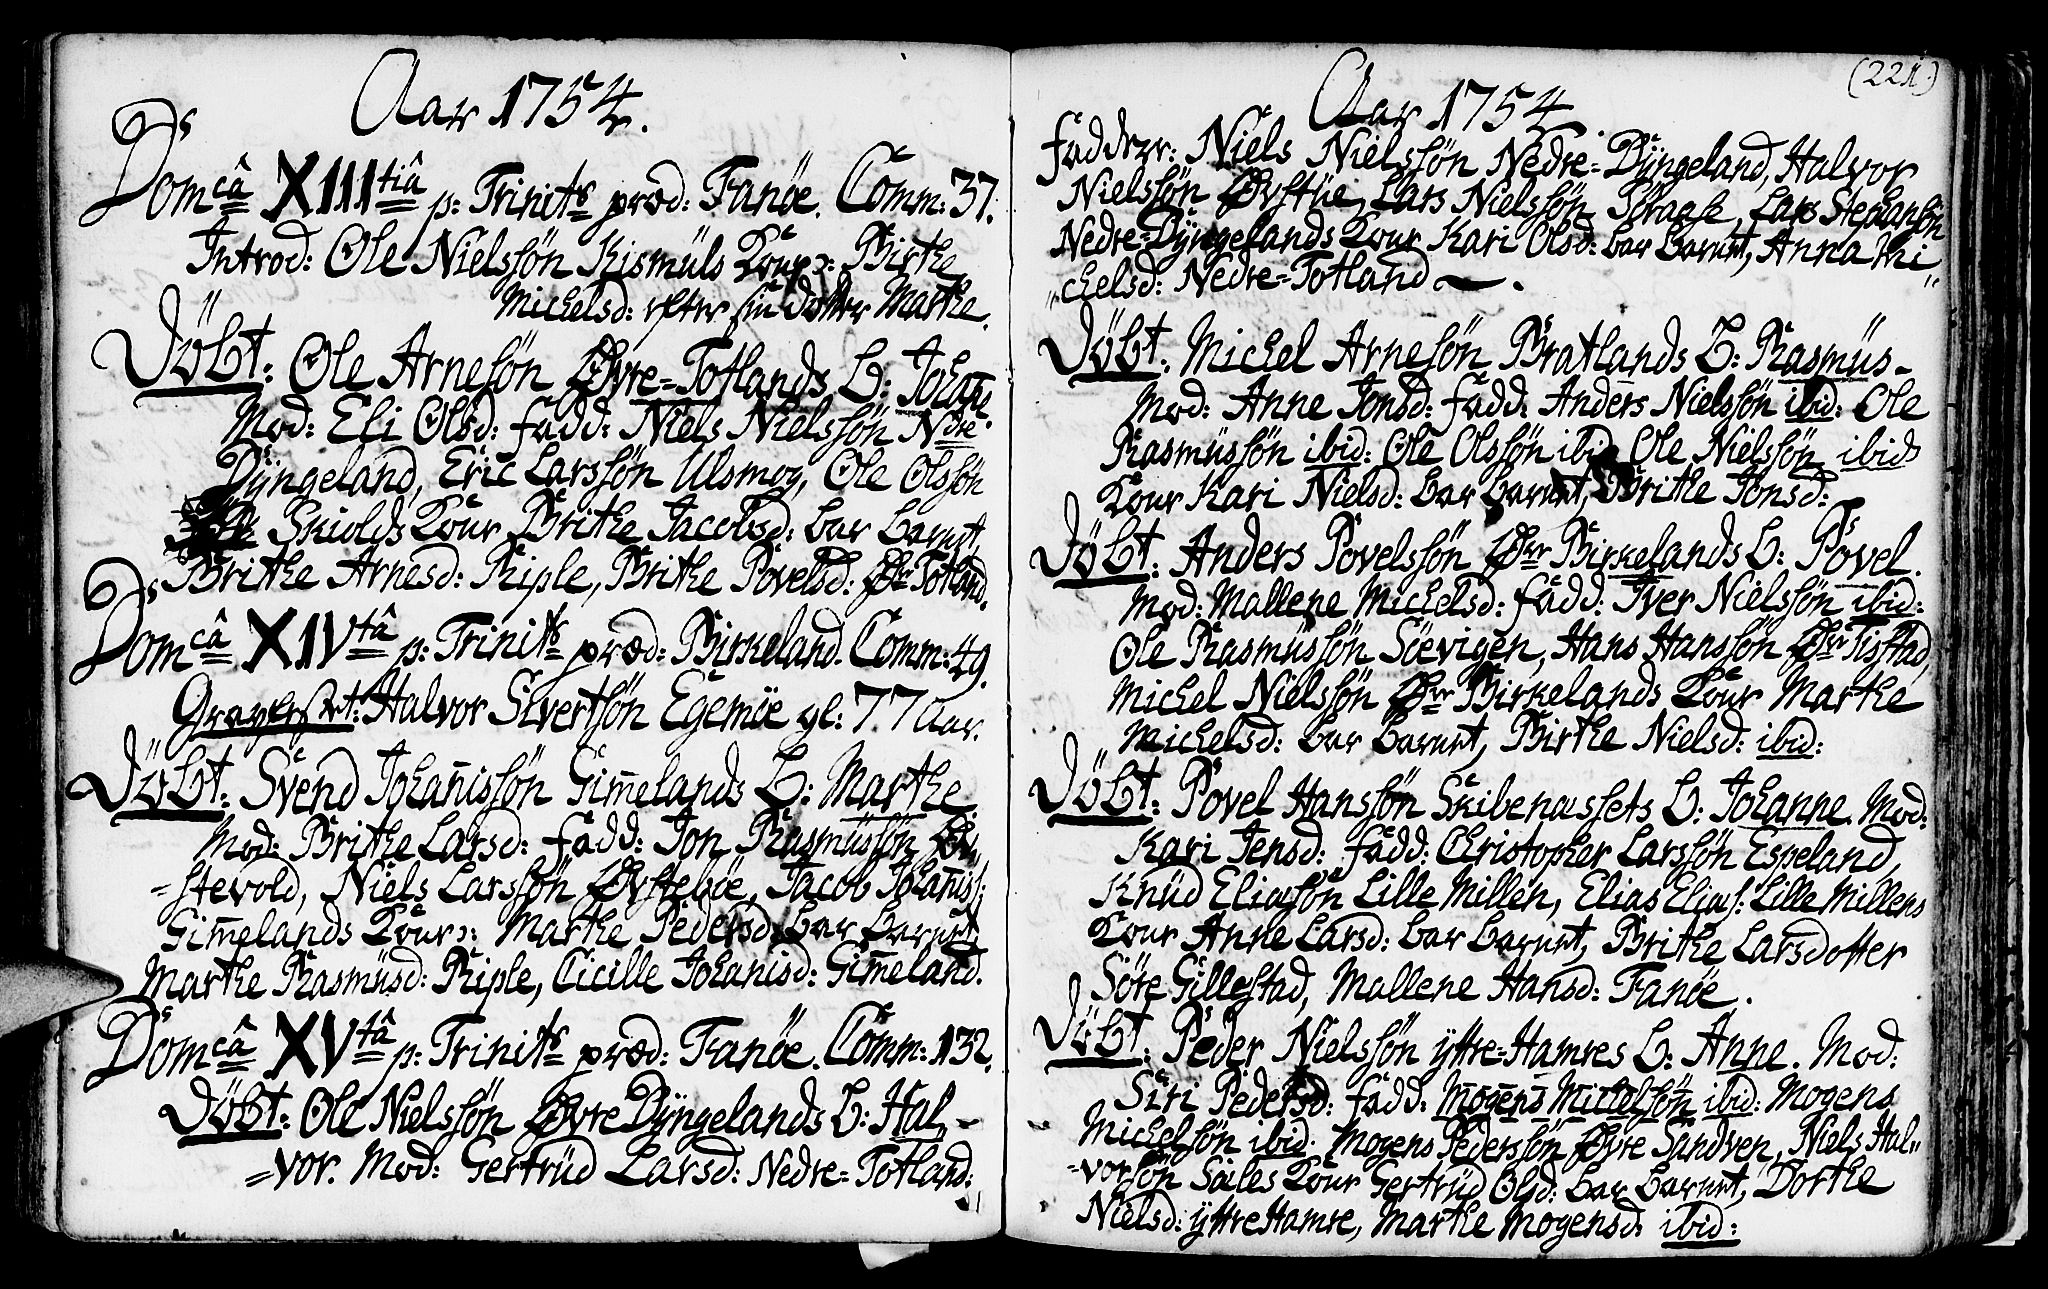 Aar 1754.
Dom câ XIII tiâ p: Trinit s præd: Fanöe. Comm: 37.
Introd: Ole Nielssön Kismüls Koun: Birthe
Michelsd: efter sin dotter Marthe.
Döbt: Ole Arnesön Øvre=Totlands B: Johañe.
Mod: Eli Olsd: Fadd: Niels Nielssön Ndre
Dÿngeland, Eric Larssön Ulsmog, Ole Olssön
Skiolds Kour Brithe Jacobsd: bar barnet,
Brithe Arnesd: Riple, Brithe Povelsd: Øv Totland.
Dom câ XIV tâ p: Trinit s præd: Birkeland. Comm: 49.
Graverfæst: Halvor Sivertsön Egemöe gl: 77 aar.
Döbt: Svend Johañissön Gim̄elands B: Marthe
Mod: Brithe Larsd: Fadd: Jon Rasmüssön Øv
=stevold, Niels Larssön Øvsteböe, Jacob Johañiss:
Gim̄elands Kour: Marthe Pedersd: bar barnet,
Marthe Rasmüsd: Riple, Cicille Johañisd: Gim̄eland.
Dom câ XV tâ p: Trinit s præd: Fanöe. Comm: 132.
Döbt: Ole Nielssön Øvre Dÿngelands B: Hal,
=vor. Mod: Gertrüd Larsd: Nedre=Totland:
(221)
Aar 1754
Fadder: Niels Nielssön Nedre=Dÿngeland, Halvor
Nielssön Øvstüe, Lars Nielssön, Lars Stephansön
Nedre=Dÿngelands Kour Kari Olsd: bar barnet, Anna Mi
"chelsd: Nedre=Totland.
Döbt: Michel Arnesön Bratlands B: Rasmüs.
Mod: Anne Jonsd: Fadd: Anders Nielssön ibid: Ole
Rasmüssön ibid: Ole Olssön ibid Ole Nielssön ibids
Kour Kari Nielsd: bar barnet, Brithe Jonsd:
Döbt: Anders Povelssön Øvr Birkelands B: Povel.
Mod: Mallene Michelsd: Fadd: Iver Nielssön ibid:
Ole Rasmüssön Söevigen, Hans Hanssön Øvr Tistad,
Michel Nielssön Øvr Birkelands Kour Marthe
Michelsd: bar barnet, Birthe Nielsd: ibid:
Döbt: Povel Hanssön Skibenæssets B: Johanne. Mod:
Kari Jensd: Fadd: Christopher Larssön Espeland,
Knüd Eliasön Lille Millen, Elias Elias: Lille Millens
Kour Anne Larsd: bar barnet, Brithe Larsdotter
Söre Gillestad, Mallene Hansd: Fanöe.
Döbt: Peder Nielssön ÿttre=Hamres B: Anne. Mod:
Siri Pedersd: Fadd: Mogens Michelsön ibid: Mogens
Michelsön ibid: Mogens Pederssön Øvre Sandven, Niels Hal"
=vorsön Söiles Kour Gertrüd Olsd: bar barnet, Dorthe
Nielsd: ÿttre Hamre, Marthe Mogensd: ibid: